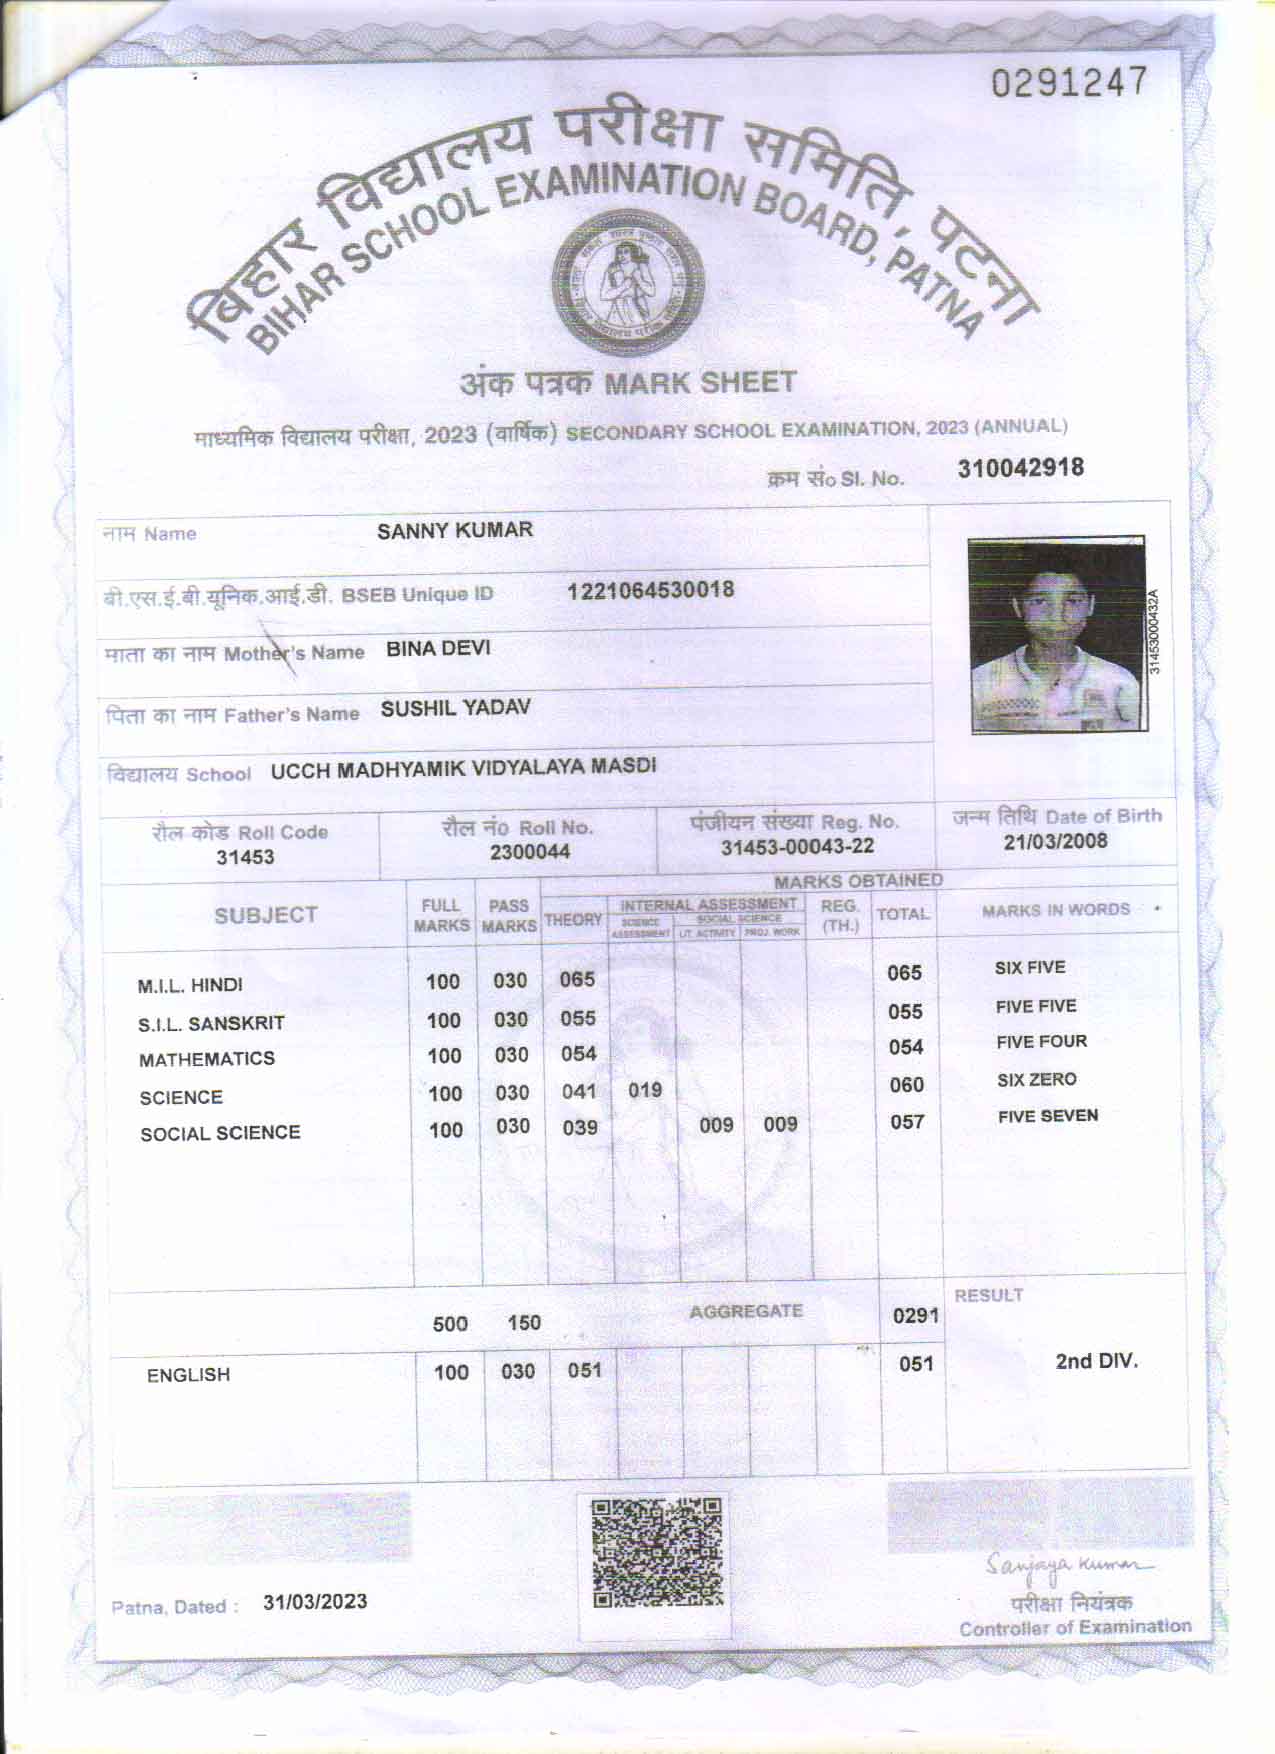 0291247
बिहार विद्यालय परीक्षा समिति, पटना
BIHAR SCHOOL EXAMINATION BOARD, PATNA
अंक पत्रक MARK SHEET
माध्यमिक विद्यालय परीक्षा, 2023 (वार्षिक) SECONDARY SCHOOL EXAMINATION, 2023 (ANNUAL)
क्रम सं० Sl. No. 310042918
नाम Name SANNY KUMAR
बी.एस.ई.बी.यूनिक.आई.डी. BSEB Unique ID 1221064530018
माता का नाम Mother's Name BINA DEVI
पिता का नाम Father's Name SUSHIL YADAV
विद्यालय School UCCH MADHYAMIK VIDYALAYA MASDI
314530000432A
रौल कोड Roll Code रौल नं० Roll No. पंजीयन संख्या Reg. No. जन्म तिथि Date of Birth
31453 2300044 31453-00043-22 21/03/2008
MARKS OBTAINED
SUBJECT FULL MARKS PASS MARKS THEORY INTERNAL ASSESSMENT REG. (TH.) TOTAL MARKS IN WORDS
SCIENCE ASSESSMENT SOCIAL SCIENCE
LIT. ACTIVITY PROJ. WORK
M.I.L. HINDI 100 030 065 065 SIX FIVE
S.I.L. SANSKRIT 100 030 055 055 FIVE FIVE
MATHEMATICS 100 030 054 054 FIVE FOUR
SCIENCE 100 030 041 019 060 SIX ZERO
SOCIAL SCIENCE 100 030 039 009 009 057 FIVE SEVEN
500 150 AGGREGATE 0291 RESULT
ENGLISH 100 030 051 051 2nd DIV.
Sanjaya Kumar
Patna, Dated : 31/03/2023
परीक्षा नियंत्रक
Controller of Examination